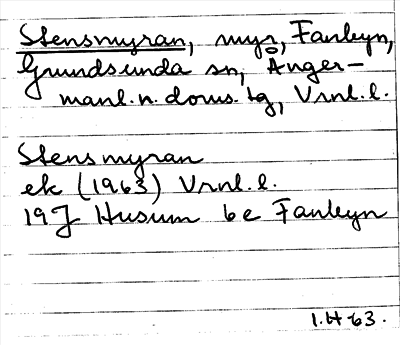 Stensmyran, myr, Fanbyn,
Grundsunda sn, Ånger-
manl.n. doms. tg, Vrnl.l.
Stensmyran
ek (1963) Vrnl.l.
19J Husum be Fanbyn
I.H-63.